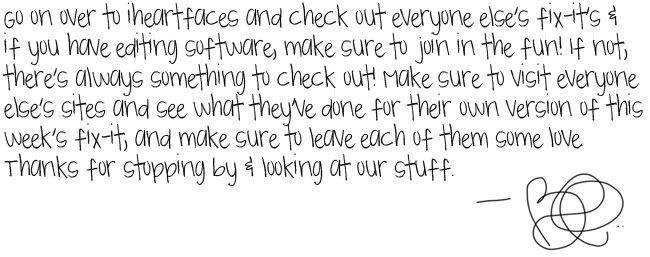 Go on over to iheartfaces and check out everyone else's fix-it's &
if you have editing software, make sure to join in the fun! If not,
there's always something to check out! Make sure to visit everyone
else's sites and see what they've done for their own version of this
week's fix-it, and make sure to leave each of them some love
Thanks for stopping by & looking at our stuff.